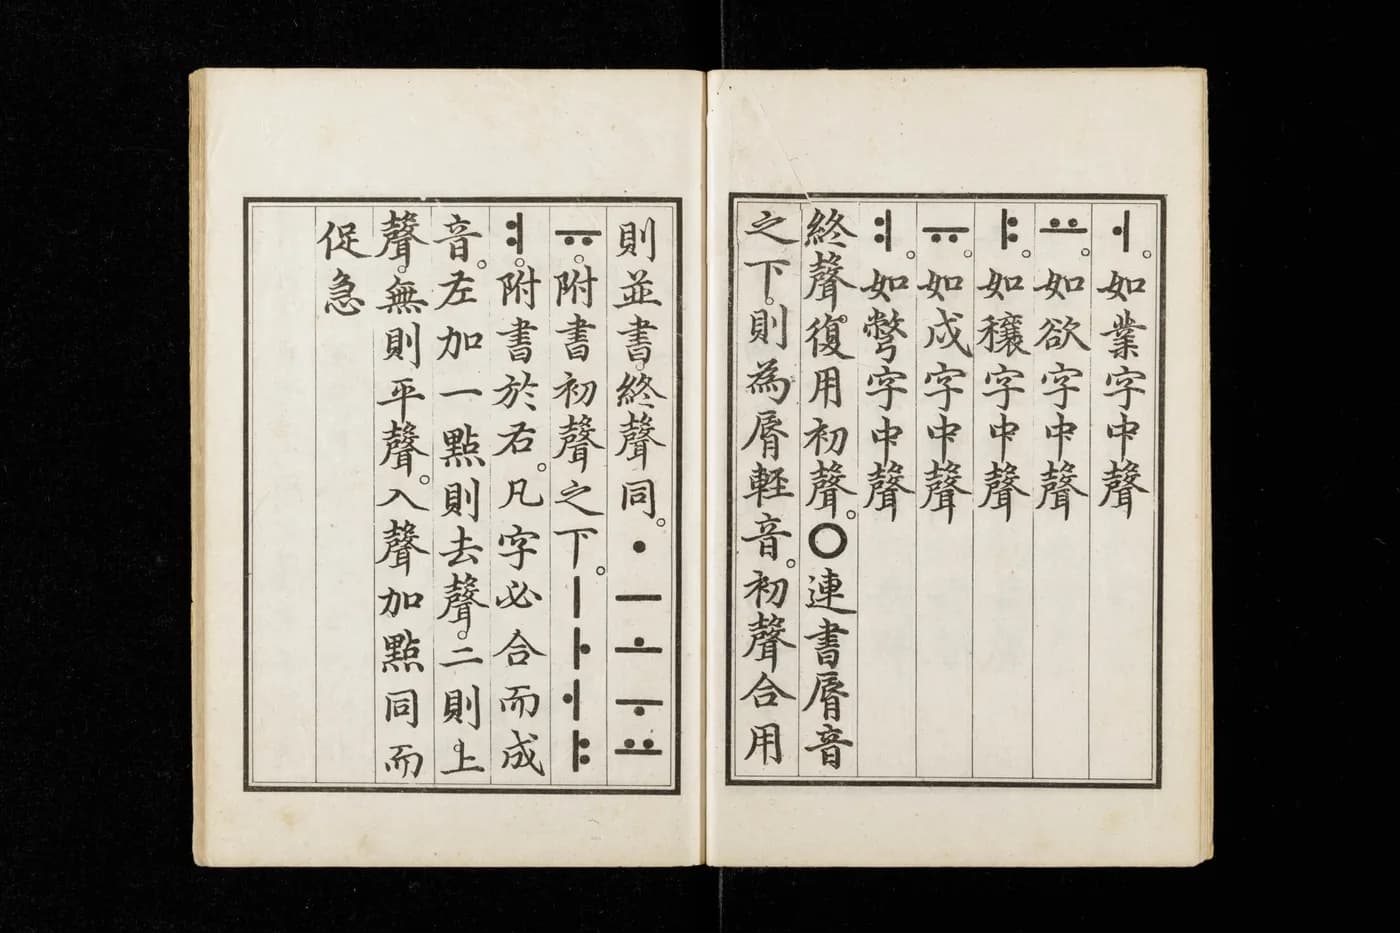 ㅓ。如業字中聲
ㅛ。如欲字中聲
ㅑ。如穰字中聲
ㅠ。如戌字中聲
ㅕ。如彆字中聲
終聲。復用初聲。ㅇ連書脣音
之下。則為脣輕音。初聲合用
則並書。終聲同。ㆍㅡㅗㅜㅛ
ㅠ。附書初聲之下。ㅣㅏㅓㅑ
ㅕ。附書於右。凡字必合而成
音。左加一點則去聲。二則上
聲。無則平聲。入聲加點同而
促急